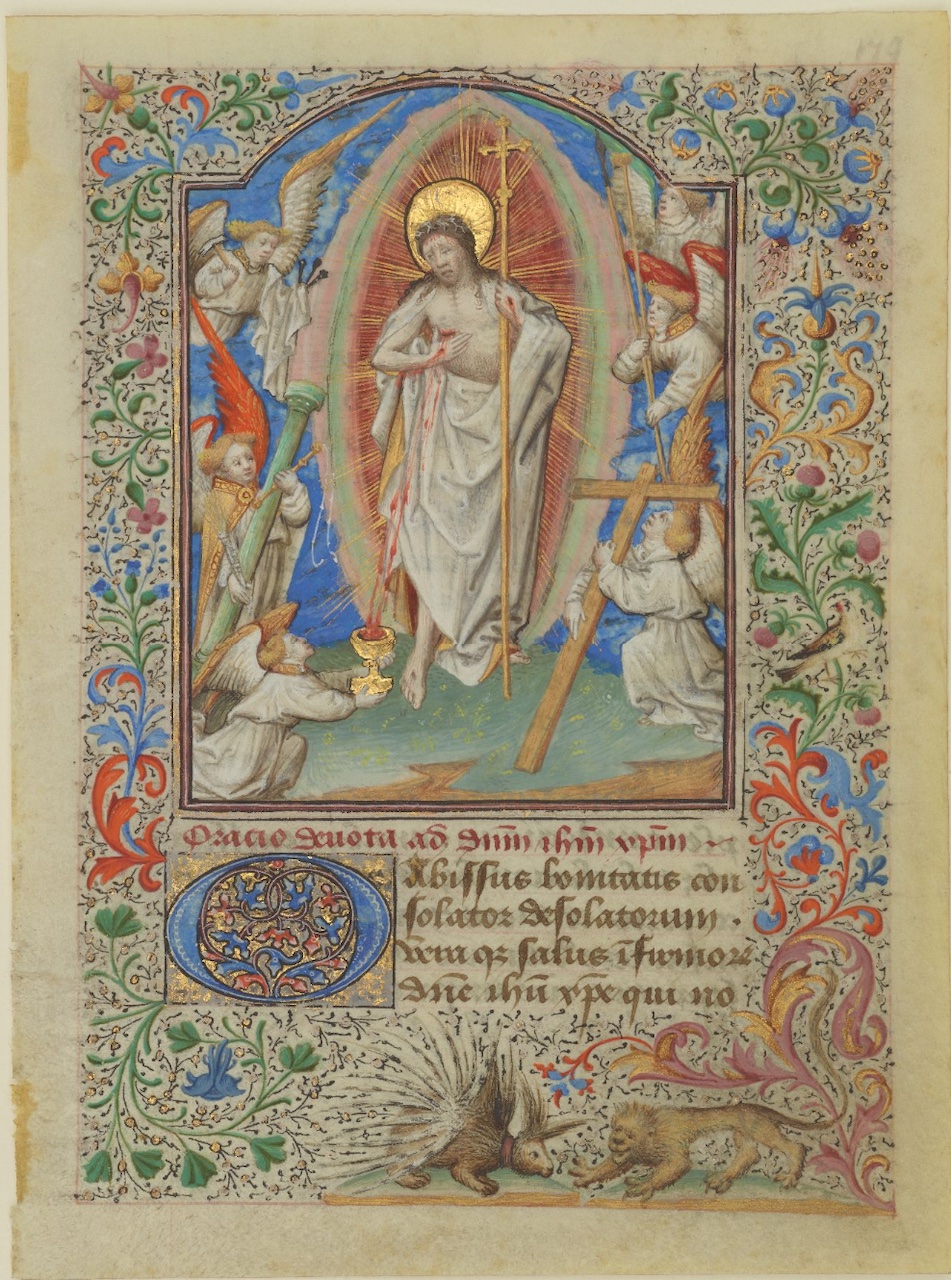 Oracio deuota ad dnm ihm xpm
O Abissus bonitatis con
solator desolatorum .
vera qz salus ifirmor
dne ihu xpe qui no